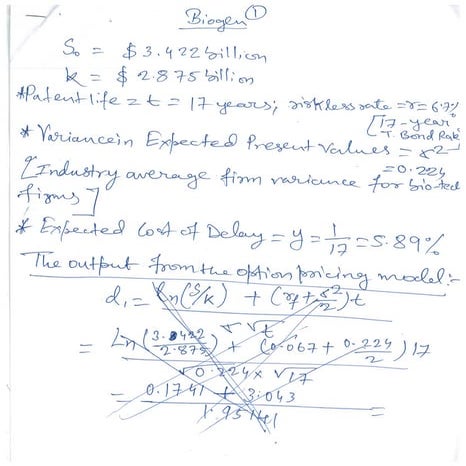 Biogen ①
S₀ = $3.422 billion
k = $ 2.875 billion
*Patent life = t = 17 years; riskless rate = r = 6.7%
[17-year
T. Bond Rate]
* Variance in Expected Present Values = s²
= 0.224
[Industry average firm variance for bio-tech
firms]
* Expected Cost of Delay = y = 1/17 = 5.89%
The output from the option pricing model:-
d₁ = ln(S/k) + (r + s²/2)t
√t
= Ln(3.422/2.875) + (0.067 + 0.224/2) 17
√0.224 × √17
= 0.1741 + 3.043
=